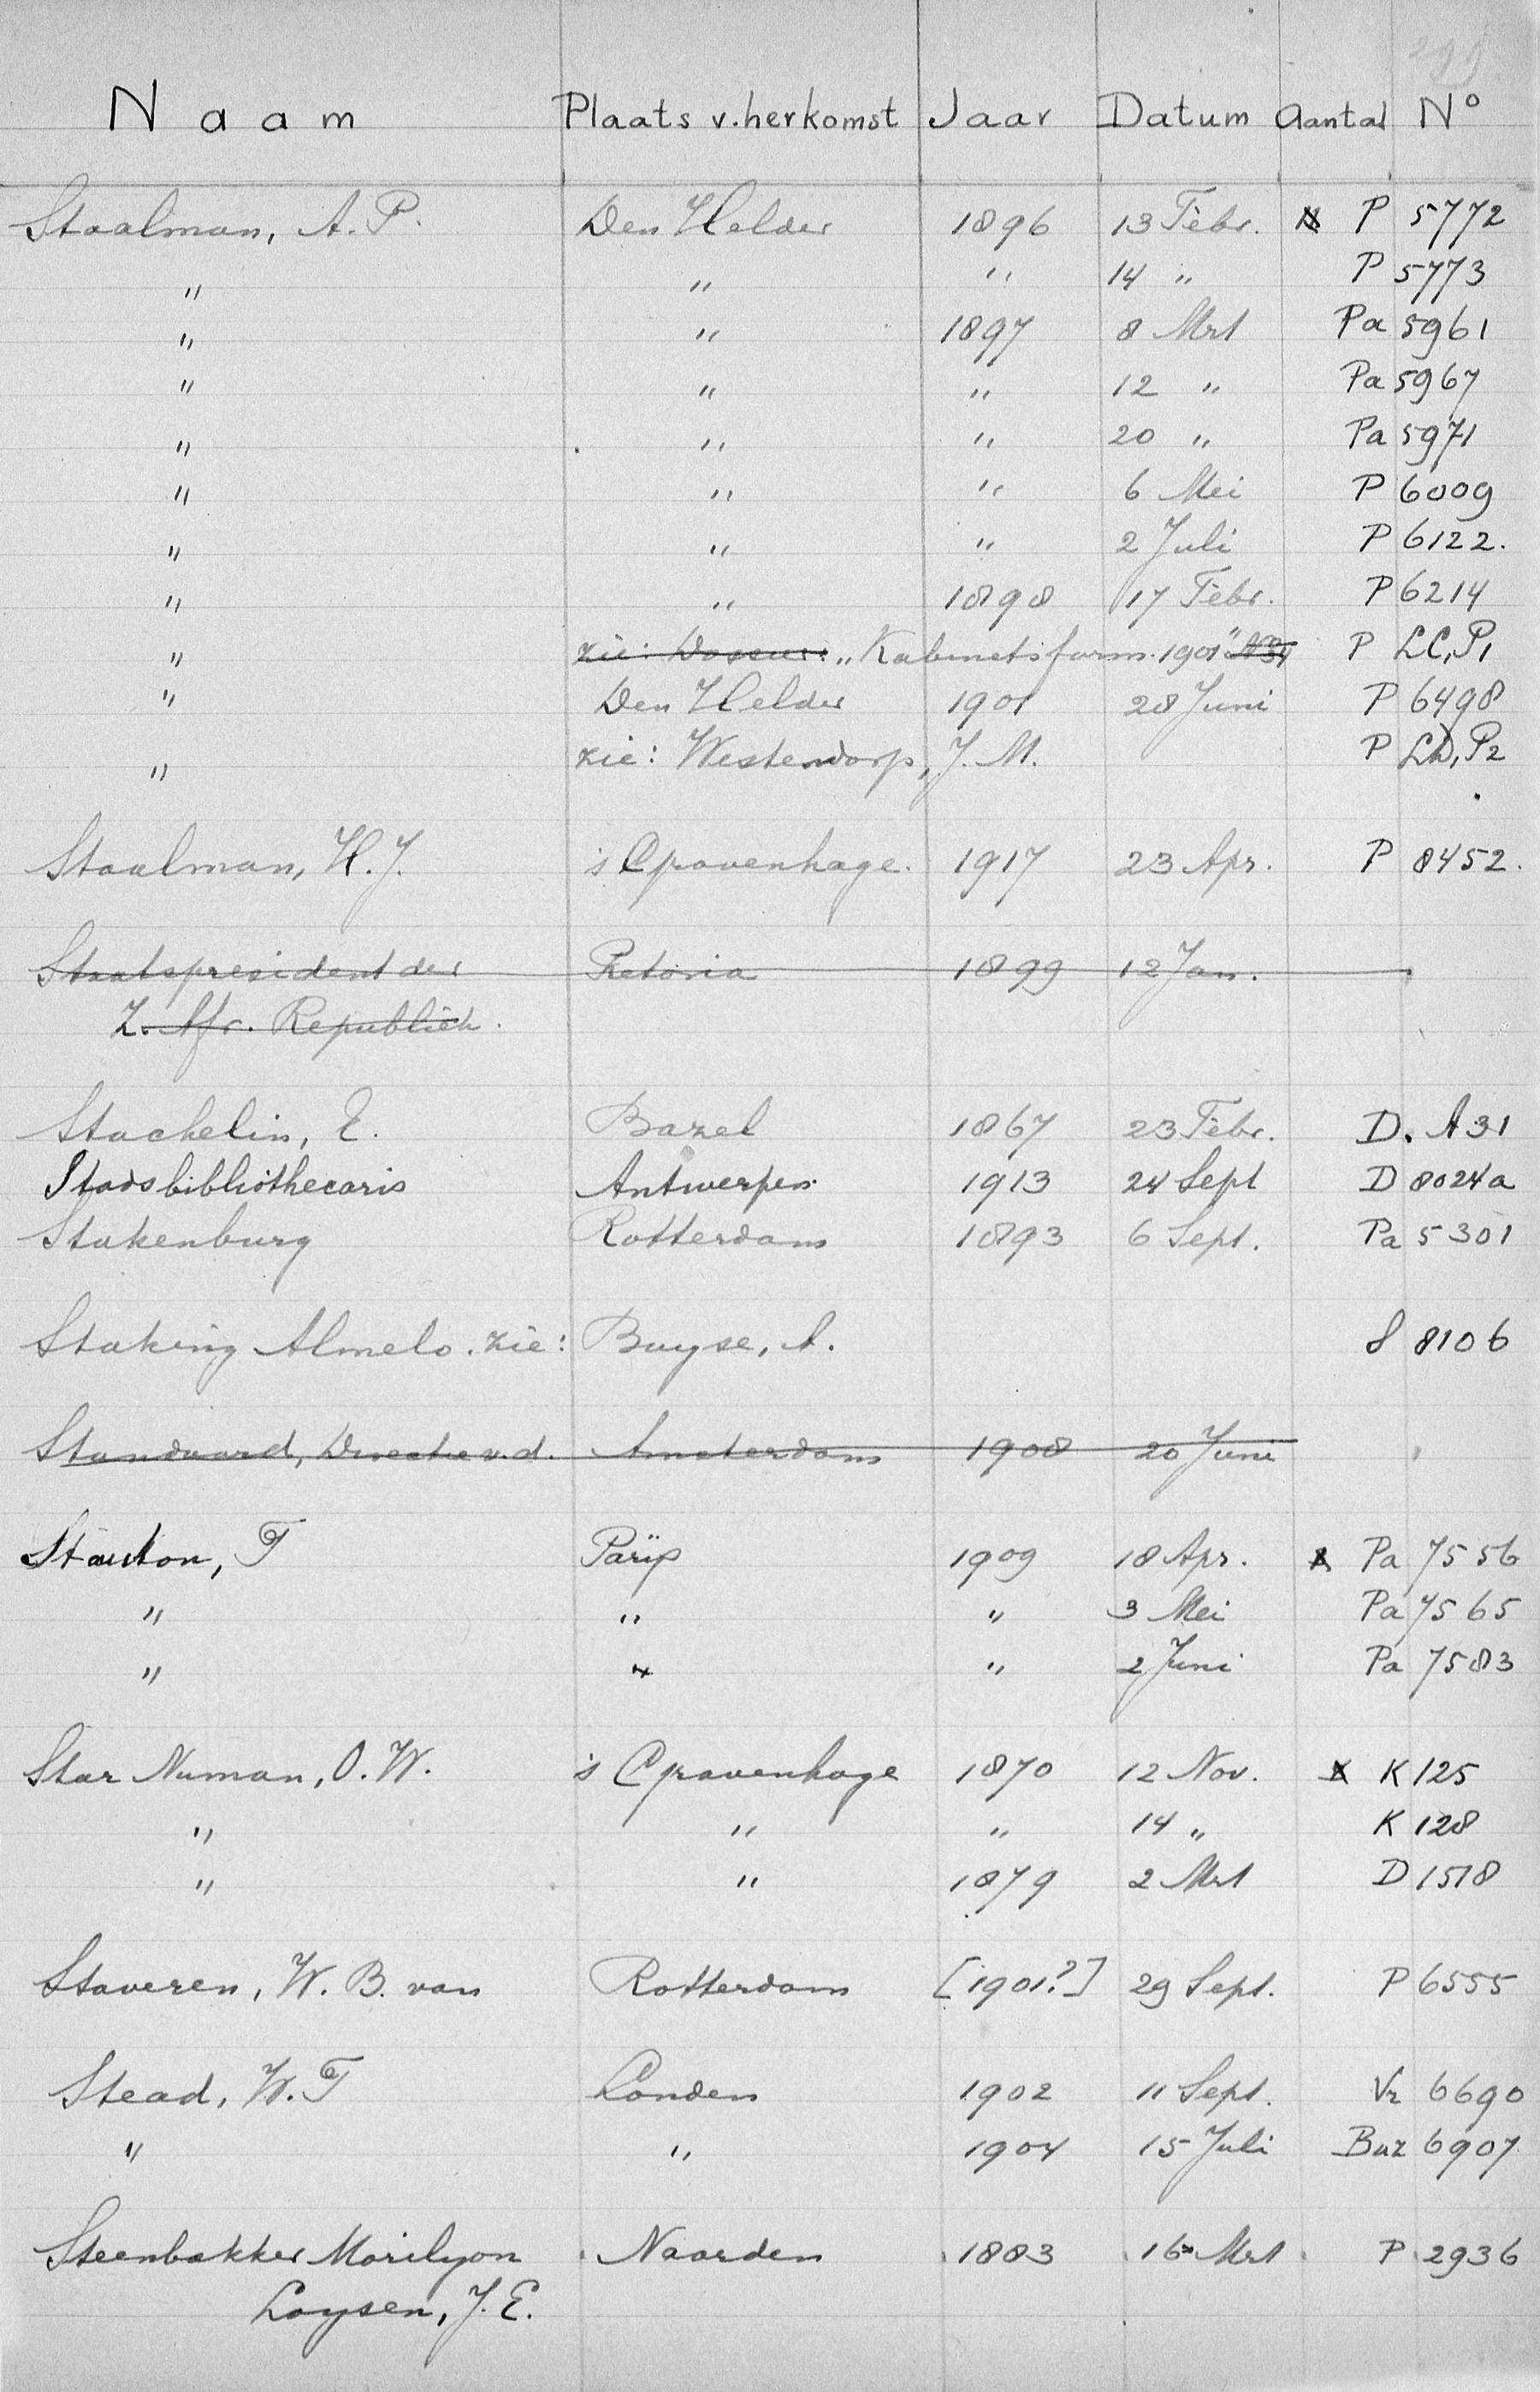 299
Naam Plaats v. herkomst Jaar Datum Aantal No
Staalman, A. P. Den Helder 1896 13 Febr. P 5772
" " " 14 " P 5773
" " 1897 8 Mrt Pa 5961
" " " 12 " Pa 5967
" " " 20 " Pa 5971
" " " 6 Mei P 6009
" " " 2 Juli P 6122.
" " 1898 17 Febr. P 6214
" zie: Dossier: „Kabinetsform. 1901" P LC, P1
" Den Helder 1901 28 Juni P 6498
" zie: Westendorp, J. M. P LD, P2
Staalman, H. J. 's Gravenhage. 1917 23 Apr. P 8452.
Staatspresident der Pretoria 1899 12 Jan.
Z. Afr. Republiek.
Stachelin, E. Bazel 1867 23 Febr. D. A31
Stadsbibliothecaris Antwerpen 1913 24 Sept D 8024a
Stakenburg Rotterdam 1893 6 Sept. Pa 5301
Staking Almelo. zie: Buyse, A. S 8106
Standaard, Directie v. d. Amsterdam 1908 20 Juni
Stanton, T Parijs 1909 18 Apr. Pa 7556
" " " 3 Mei Pa 7565
" " " 2 Juni Pa 7583
Star Numan, O. W. 's Gravenhage 1870 12 Nov. K 125
" " " 14 " K 128
" " 1879 2 Mrt D 1518
Staveren, W. B. van Rotterdam [1901?] 29 Sept. P 6555
Stead, W. T Londen 1902 11 Sept. Vr 6690
" " 1904 15 Juli Buz 6907
Steenbakker Morilyon Naarden 1883 16 Mrt P 2936
Loysen, J. E.